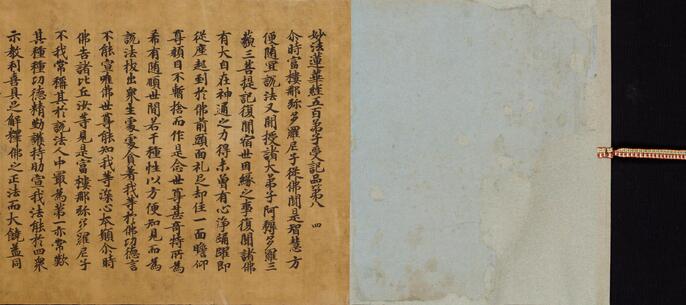 妙法蓮華經五百弟子受記品第八　四
尒時富樓那弥多羅尼子從佛聞是智慧方
便隨冝說法又聞授諸大弟子阿耨多羅三
藐三菩提記復聞宿世因縁之事復聞諸佛
有大自在神通之力得未曾有心淨踊躍即
從座起到於佛前頭面礼足却住一面瞻仰
尊顔目不暫捨而作是念世尊甚奇特所為
希有随順世間若干種性以方便知見而為
說法抜出衆生處處貪著我等於佛功德言
不能宣唯佛世尊能知我等深心本願尒時
佛告諸比丘汝等見是富樓那弥多羅尼子
不我常稱其於說法人中冣為第一亦常歎
其種種功德精勤護持助宣我法能於四衆
示教利喜具足解釋佛之正法而大饒益同